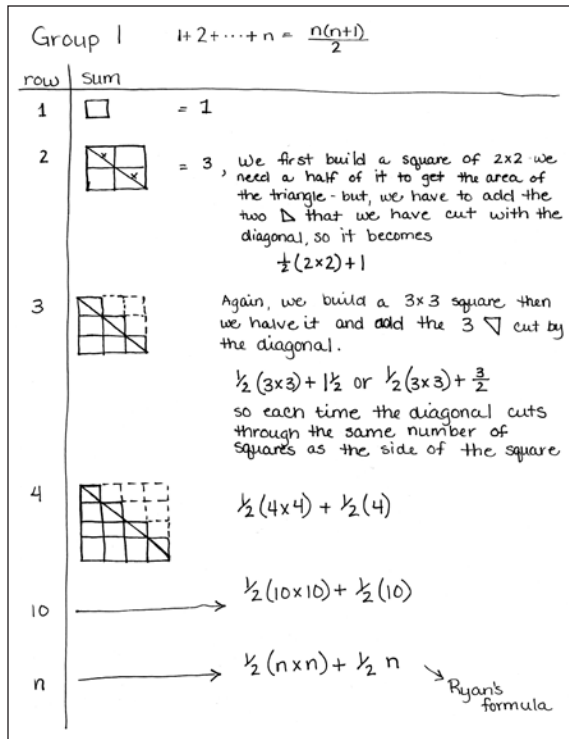 Group 1 1+2+···+n = n(n+1)/2
row sum
1 = 1
2 = 3, We first build a square of 2x2 we
need a half of it to get the area of
the triangle - but, we have to add the
two ◺ that we have cut with the
diagonal, so it becomes
½(2×2)+1
3 Again, we build a 3×3 square then
we halve it and add the 3 ◹ cut by
the diagonal.
½(3×3)+1½ or ½(3×3)+3/2
so each time the diagonal cuts
through the same number of
squares as the side of the square
4 ½(4×4) + ½(4)
10 → ½(10×10) + ½(10)
n → ½(n×n) + ½ n
Ryan's
formula